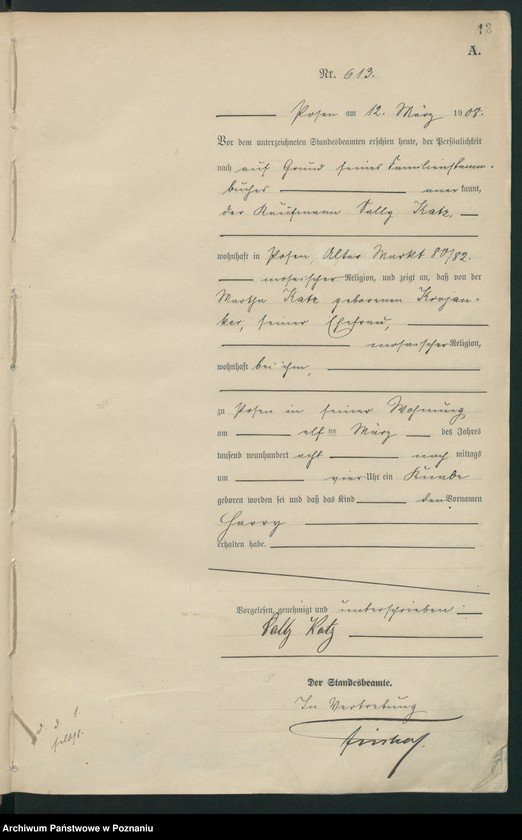 13
A.
Nr. 613.
Posen am 12. März 1908.
Vor dem unterzeichneten Standesbeamten erschien heute, der Persönlichkeit
nach auf Grund seines Familienstamm-
buches anerkannt,
der Kaufmann Sally Katz,
wohnhaft in Posen, Alter Markt 80/82.
mosaischer Religion, und zeigte an, daß von der
Martha Katz geborenen Krojan-
ker, seiner Ehefrau,
mosaischer Religion,
wohnhaft bei ihm,
zu Posen in seiner Wohnung
am elften März des Jahres
tausend neunhundert acht nachmittags
um vier Uhr ein Knabe
geboren worden sei und daß das Kind den Vornamen
Harry
erhalten habe.
Vorgelesen, genehmigt und unterschrieben:
Sally Katz
Der Standesbeamte.
In Vertretung
Archiwum Państwowe w Poznaniu